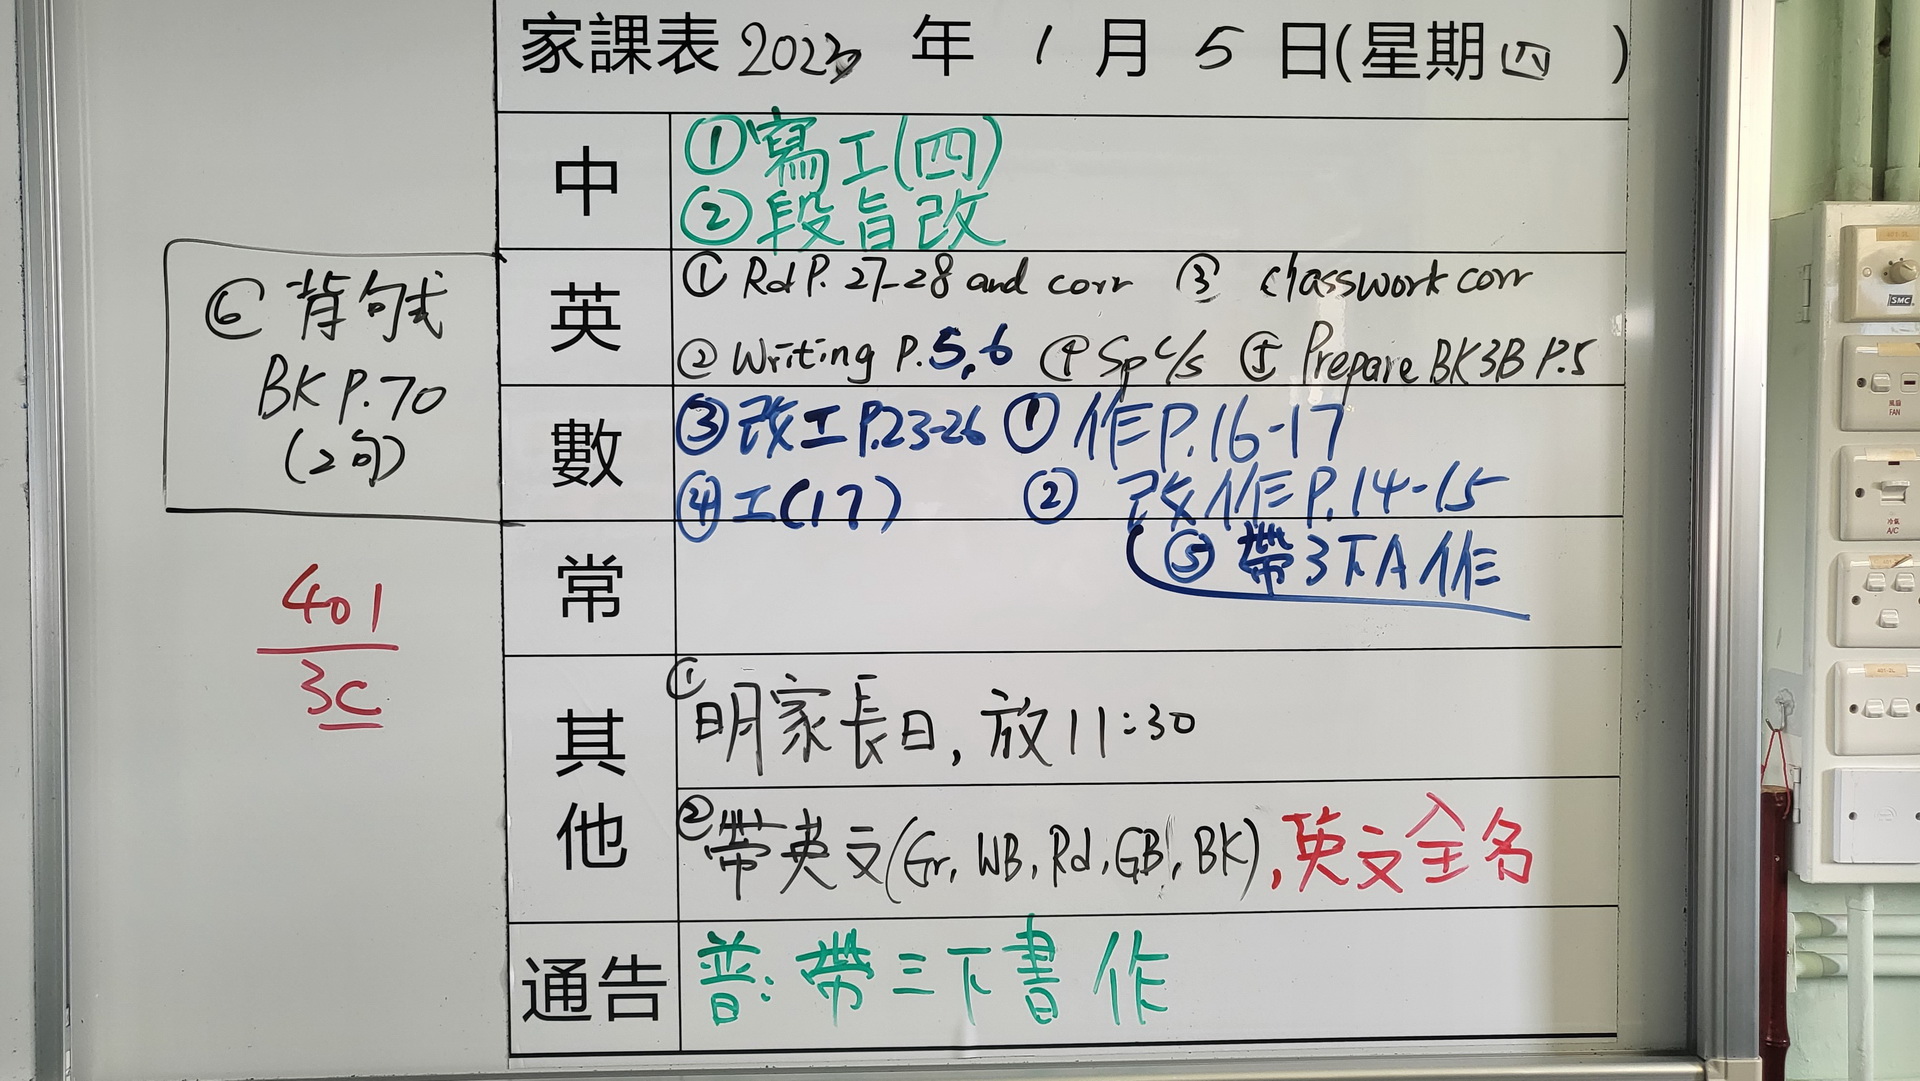 家課表 2023 年 1 月 5 日(星期四)
中
①寫工(四)
②段旨改
英
① Rd P. 27-28 and corr ③ classwork corr
② Writing P.5,6 ④ Sp c/s ⑤ Prepare BK3B P.5
⑥ 背句式
BK P.70
(2句)
數
③改工P.23-26 ①作P.16-17
④工(17) ② 改作P.14-15
⑤帶3下A作
常
401
3C
其他
①明家長日, 放11:30
②帶英文(Gr, WB, Rd, GB, BK), 英文全名
通告
普: 帶三下書作